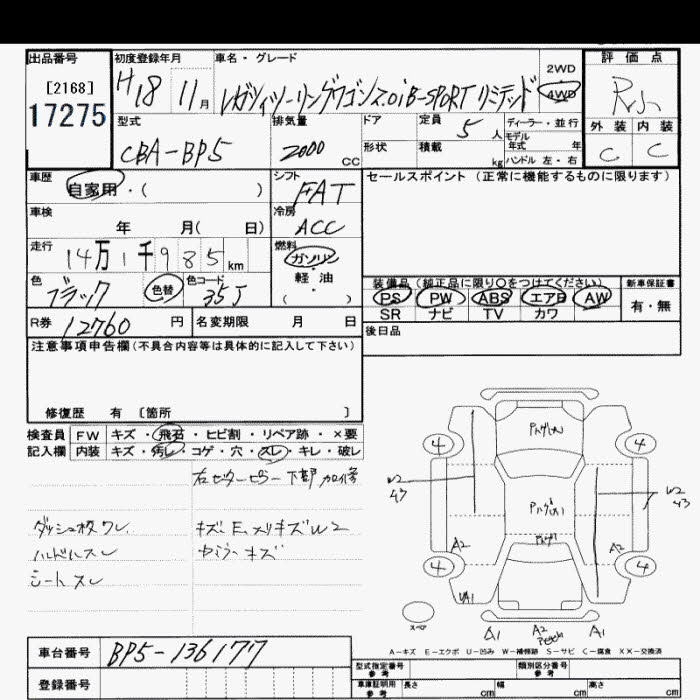 出品番号 初度登録年月 車名・グレード 2WD 評価点
[2168] H18 11月 レガツィツーリングワゴン2.0iB-SPORTリミテッド 4WD
17275 外装 内装
型式 排気量 ドア 定員 5人 ディーラー・並行
モデル
年式 年
CBA-BP5 2000 CC 形状 積載 kg ハンドル 左・右 C C
車歴 自家用・( ) シフト FAT セールスポイント (正常に機能するものに限ります)
車検 年 月( 日) 冷房 ACC
走行 14万1千985km 燃料 ガソリン
軽油
・( )
色 ブラック 色替 色コード 35J
装備品(純正品に限り○をつけてください) 新車保証書
PS PW ABS エアB AW 有・無
SR ナビ TV カワ
R券 12760円 名変期限 月 日 後日品
注意事項申告欄(不具合内容等は具体的に記入して下さい)
修復歴 有 〔箇所 〕
検査員 FW キズ・飛石・ヒビ割・リペア跡・×要
記入欄 内装 キズ・汚レ・コゲ・穴・スレ・キレ・破レ
右センターピラー下部加修
ダッシュ板ワレ キズ、E、メリキズW2
ハンドルスレ キズ
シートスレ
4 4
W2
43
W2
43
A2 A2
4 4
A1
スペア A1 A2 A1
A-キズ E-エクボ U-凹み W-補修跡 S-サビ C-腐食 XX-交換済
車台番号 BP5-136177
型式指定番号
参考 類別区分番号
参考
登録番号 車庫証明用
参考 長さ cm 幅 cm 高さ cm